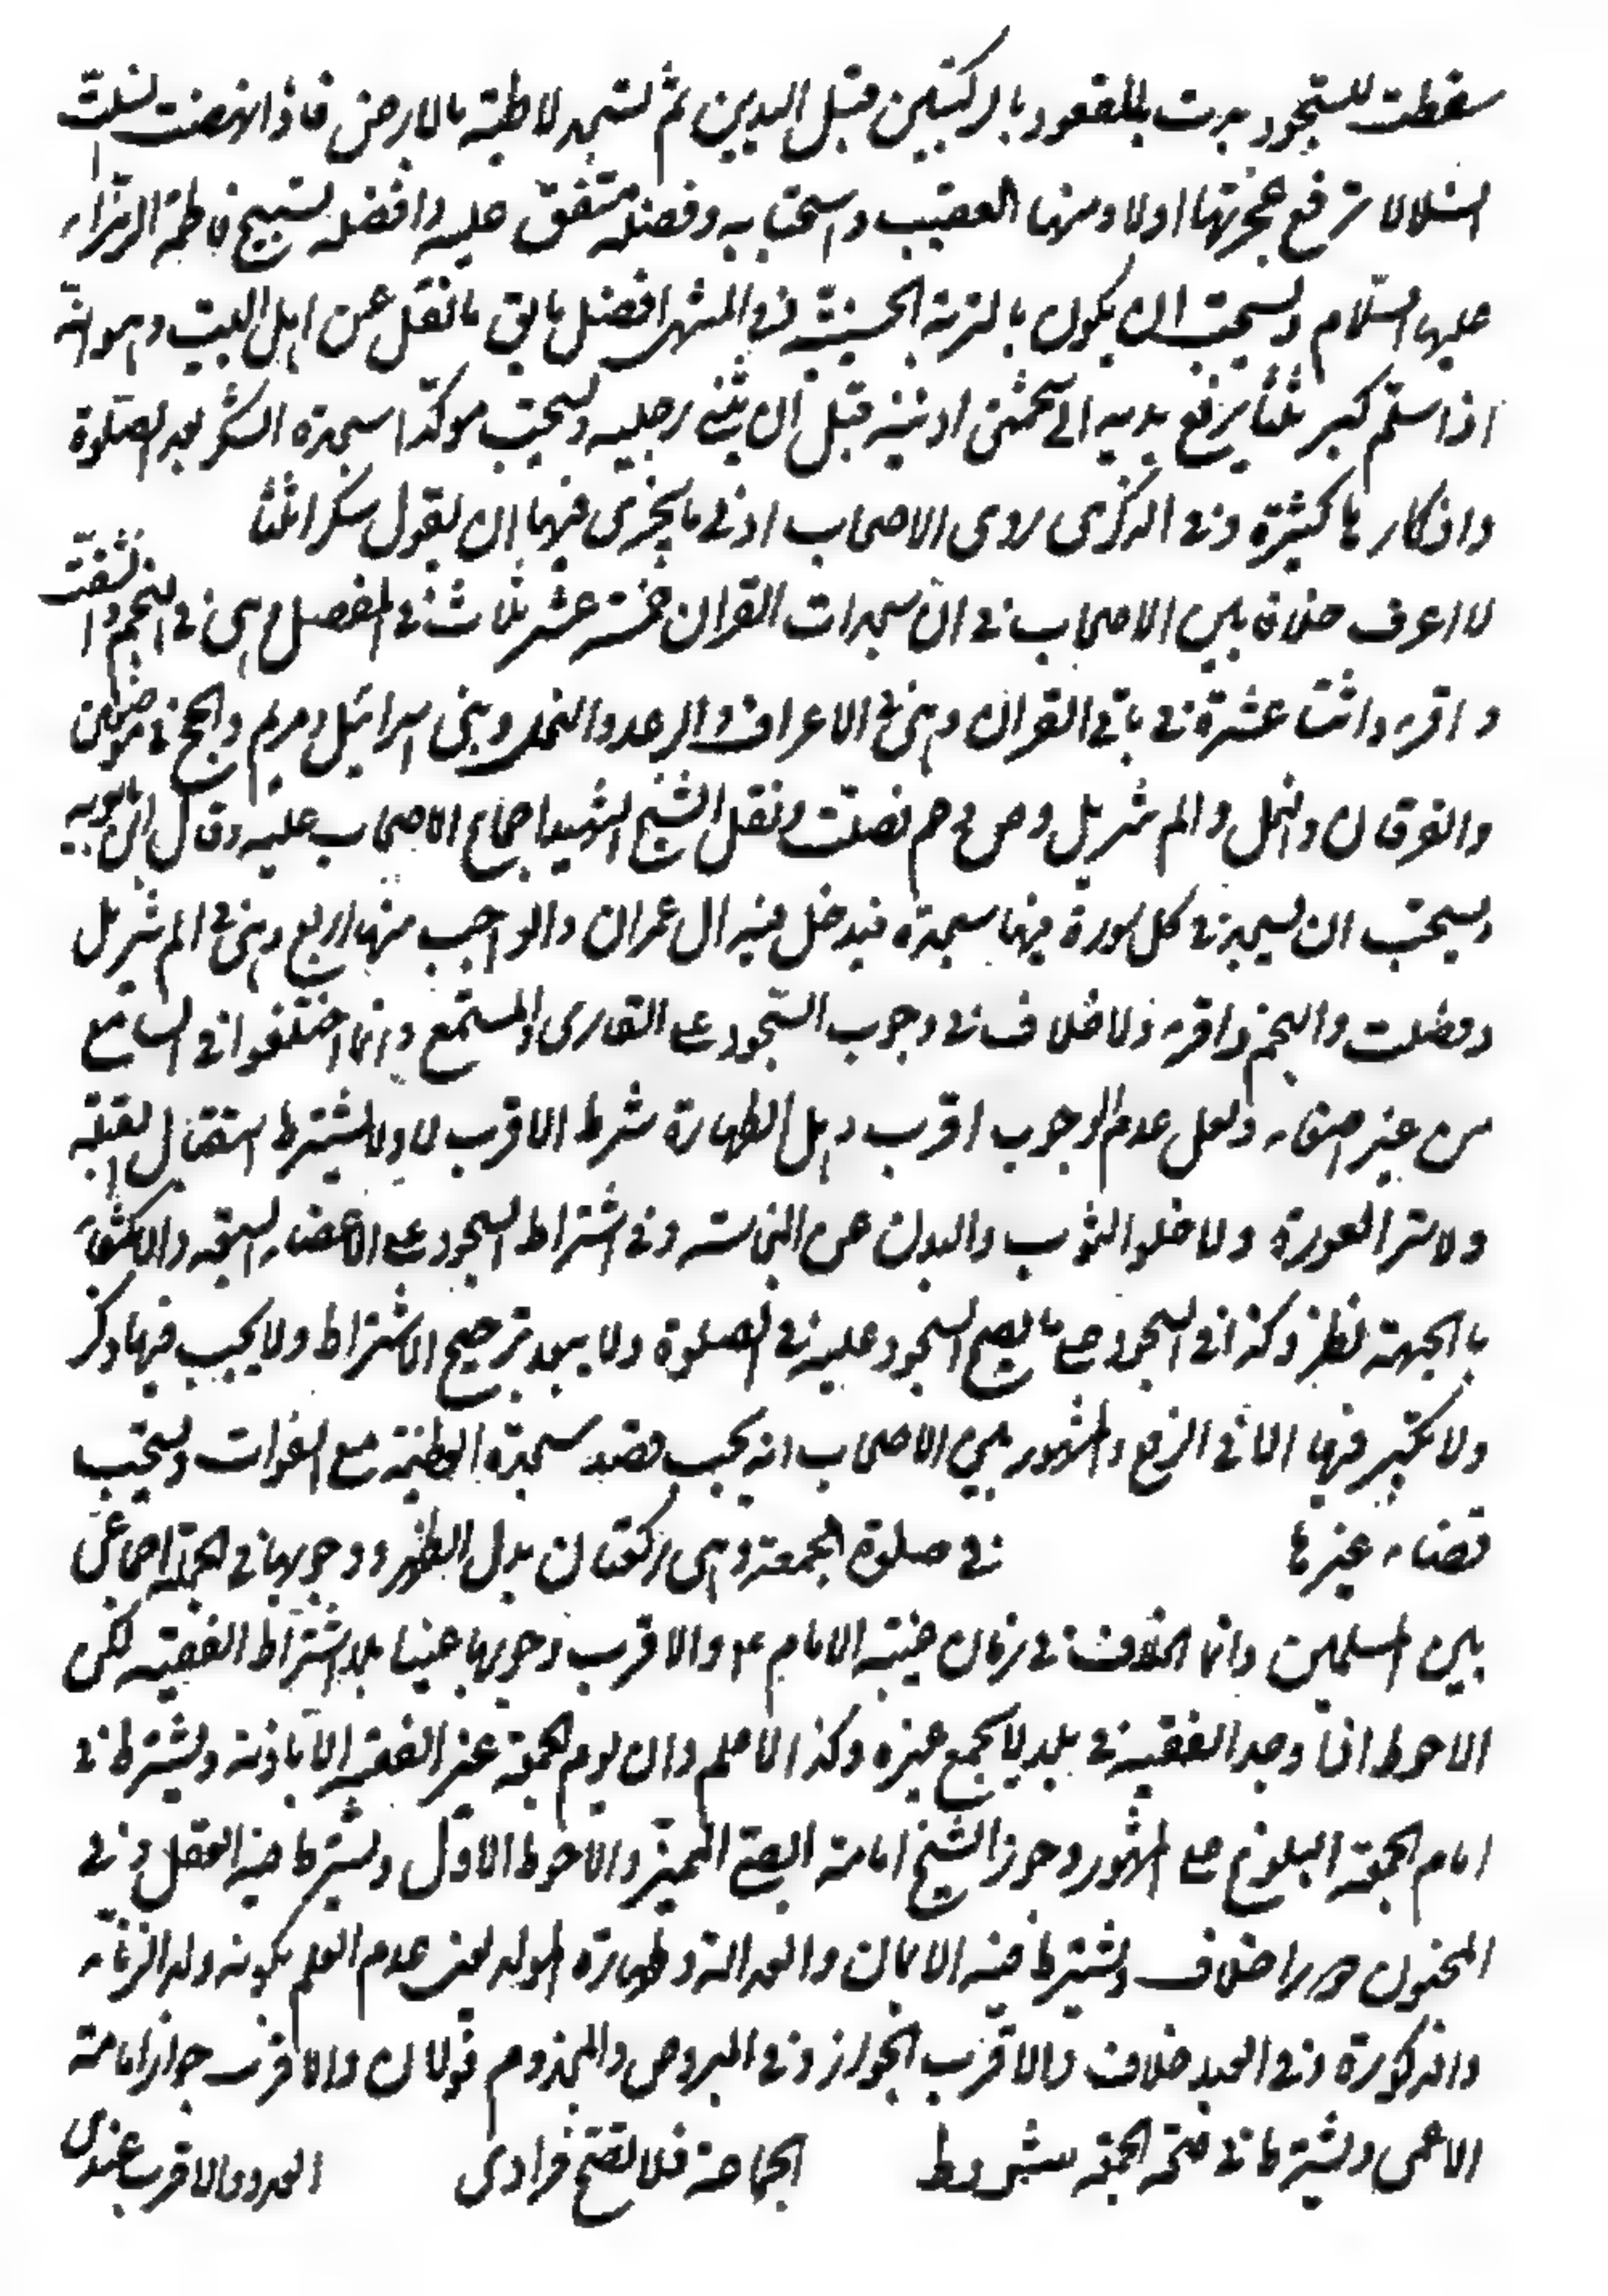 سقطت للسجود بدت بالقعود بالركبتين قبل اليدين ثم تسجد لاطئة بالارض فاذا نهضت انسلت
انسلالا لا ترفع عجزتها اولا ومنها التعقيب واستحبابه وفضله متفق عليه وافضله تسبيح فاطمة الزهراء
عليها السلام ويستحب ان يكون بالتربة الحسينية في المشهد افضل ما نقل عن اهل البيت وهو انه
اذا سلم كبر ثلثا يرفع يديه الى شحمتي اذنيه قبل ان يثني رجليه ويستحب موكدا سجدة الشكر بعد الصلوة
واذكارها كثيرة وفي الذكرى روى الاصحاب ادنى ما يجزى فيها ان يقول شكرا ثلثا
لا اعرف خلافا بين الاصحاب في ان سجدات القران خمسة عشر ثلاث في المفصل وهي في النجم وانشقت
واقرء واثنتا عشرة في باقي القران وهي في الاعراف والرعد والنحل وبني اسرائيل ومريم والحج في موضعين
والفرقان والنمل والم تنزيل وص وحم فصلت ونقل الشيخ الشهيد اجماع الاصحاب عليه وقال ابن بابويه
ويستحب ان يسجد في كل سورة فيها سجدة فيدخل فيه ال عمران والواجب منها اربع وهي في الم تنزيل
وفصلت والنجم واقرء ولا خلاف في وجوب السجود على القارى والمستمع وانما اختلفوا في السامع
من غير اصغاء ولعل عدم الوجوب اقرب وهل الطهارة شرط الاقرب لا ولا يشترط استقبال القبلة
ولا ستر العورة ولا خلو الثوب والبدن عن النجاسة وفي اشتراط السجود على الاعضاء السبعة والاكتفاء
بالجبهة نظر وكذا في السجود على ما يصح السجود عليه في الصلوة ولا يبعد ترجيح الاشتراط ولا يجب فيها ذكر
ولا تكبير فيها الا في الرفع والمشهور بين الاصحاب انه يجب قضاء سجدة العظيمة مع الفوات ويستحب
قضاء غيرها في صلوة الجمعة وهي ركعتان بدل الظهر ووجوبها في الجملة اجماعي
بين المسلمين وانما الخلاف في زمان غيبة الامام ع والاقرب وجوبها عينا بلا اشتراط الفقيه لكن
الاحوط اذا وجد الفقيه في بلد لا يجمع غيره وكذا الاعلم وان يوم الجمعة غير الفقيه الا باذنه ويشترط في
امام الجمعة البلوغ على المشهور وجوز الشيخ امامة الصبي المميز والاحوط الاول ويشترط فيه العقل وفي
المجنون خلاف ويشترط فيه الايمان والعدالة وطهارة المولد يعني عدم العلم بكونه ولد الزناء
والذكورة وفي العبد خلاف والاقرب الجواز وفي المبروص والمجذوم قولان والاقرب جواز امامة
الاعمى ويشترط في صحة الجمعة شروط الجماعة فلا تصح فرادى العدد والاقرب عندى